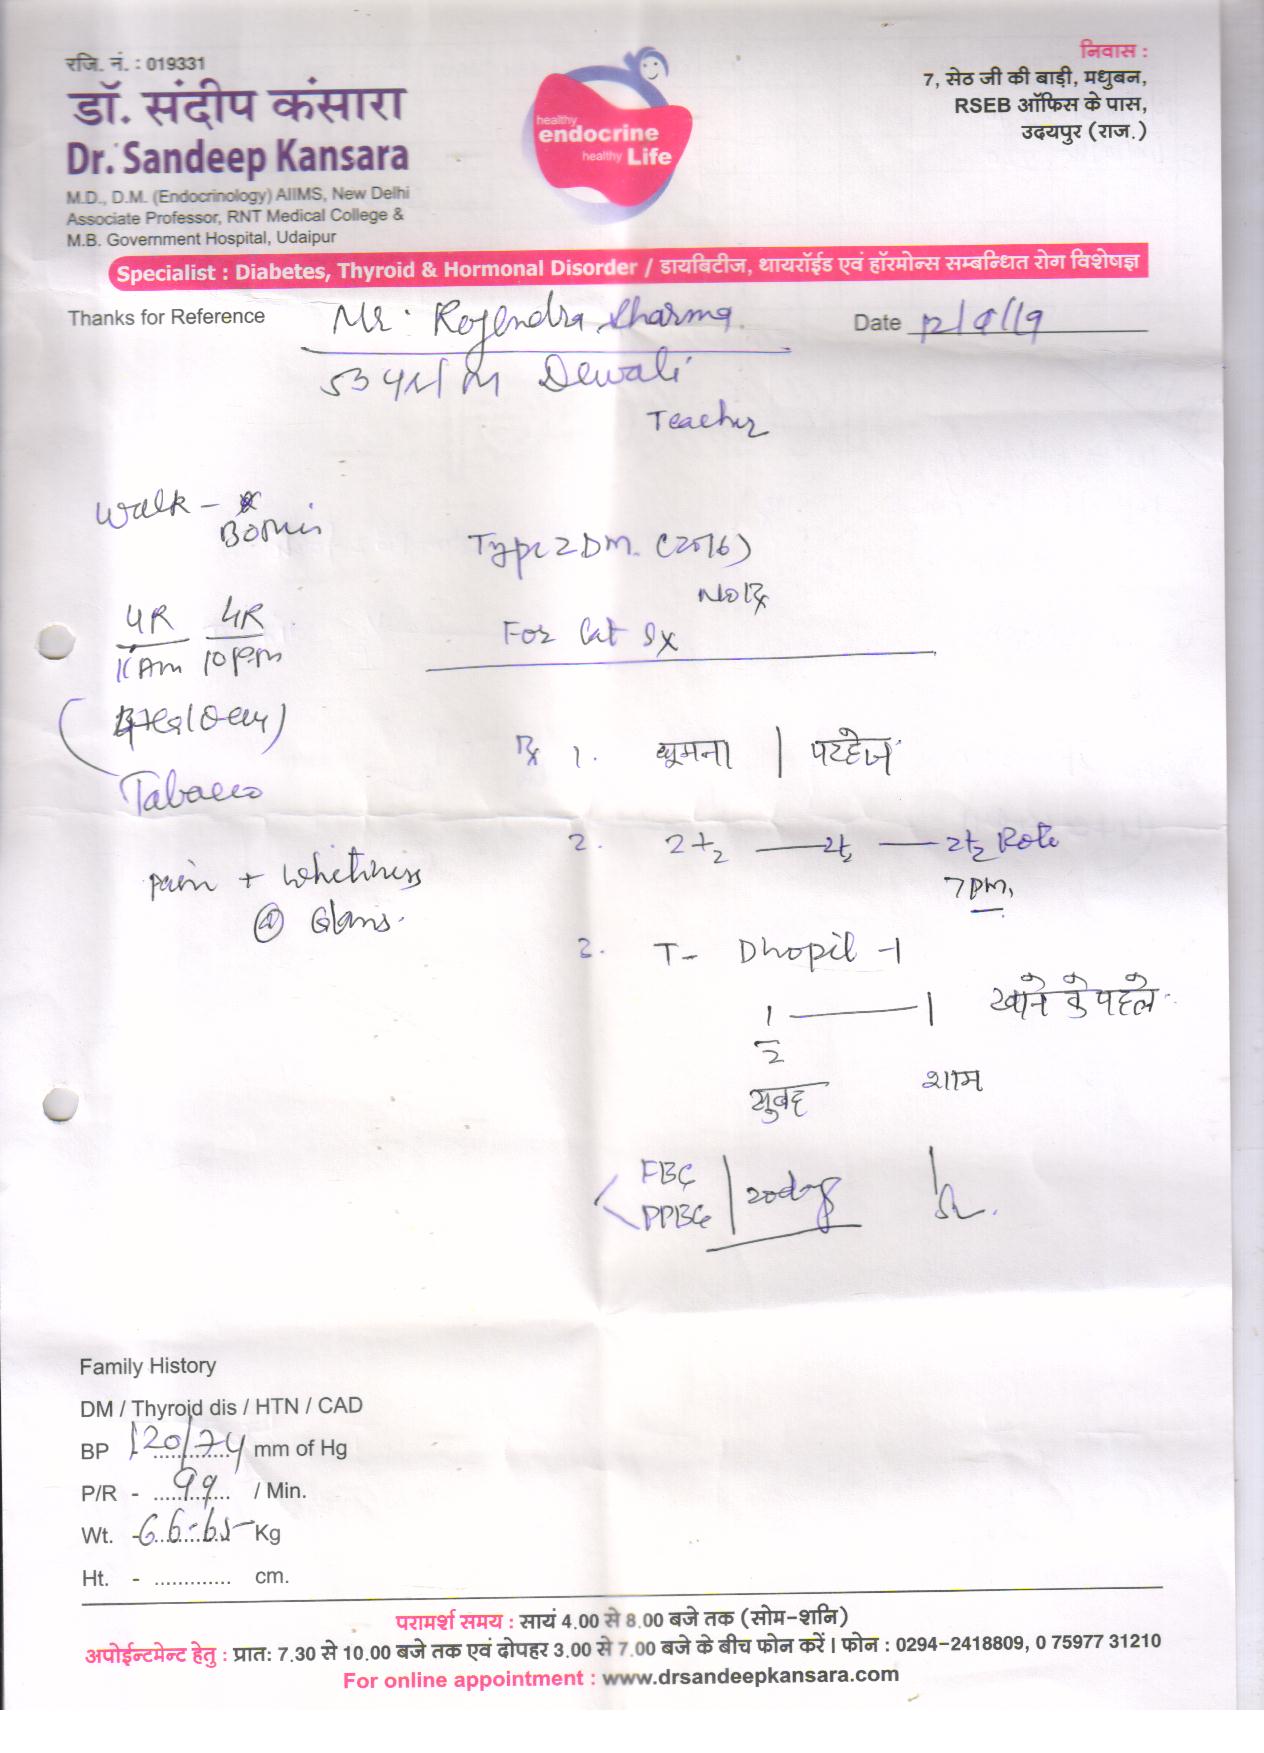 रजि. नं. : 019331
डॉ. संदीप कंसारा
Dr. Sandeep Kansara
M.D., D.M. (Endocrinology) AIIMS, New Delhi
Associate Professor, RNT Medical College &
M.B. Government Hospital, Udaipur
healthy
endocrine
healthy Life
निवास :
7, सेठ जी की बाड़ी, मधुबन,
RSEB ऑफिस के पास,
उदयपुर (राज.)
Specialist : Diabetes, Thyroid & Hormonal Disorder / डायबिटीज, थायरॉईड एवं हॉरमोन्स सम्बन्धित रोग विशेषज्ञ
Thanks for Reference Mr. Rajendra Sharma Date
Dewali
Teacher
Walk -
Type 2 DM. (2016)
No Rx
4R 4R
11 Am 10 pm
For Cat Sx
Tabacco
Rx 1. घूमना | परहेज
2. 2+2 — 2+2 — 2+2 Roti
7 pm,
pain + whitiness
@ Glans.
2. T- Dhopil -1
1/2 — 1 खाने के पहले
सुबह शाम
FBG
PPBG | 20 days
Family History
DM / Thyroid dis / HTN / CAD
BP 120/74 mm of Hg
P/R - 99 / Min.
Wt. - 66.65 Kg
Ht. - ............. cm.
परामर्श समय : सायं 4.00 से 8.00 बजे तक (सोम-शनि)
अपोईन्टमेन्ट हेतु : प्रात: 7.30 से 10.00 बजे तक एवं दोपहर 3.00 से 7.00 बजे के बीच फोन करें। फोन : 0294-2418809, 0 75977 31210
For online appointment : www.drsandeepkansara.com